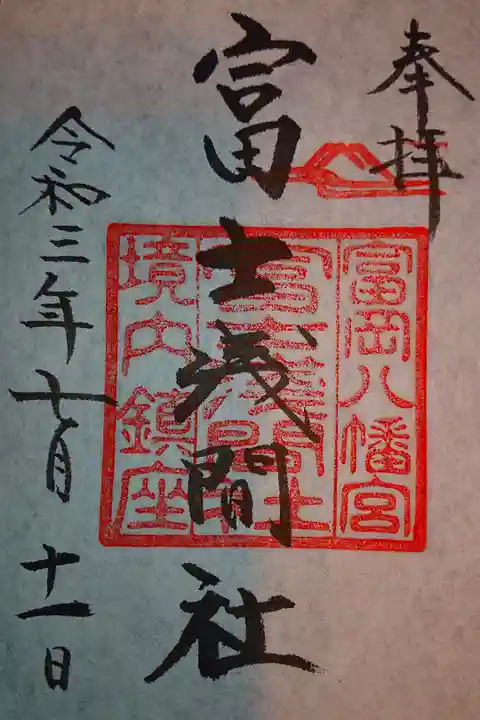 奉拝
富士浅間社
令和三年七月十一日
富岡八幡宮
富士浅間社
境内鎮座